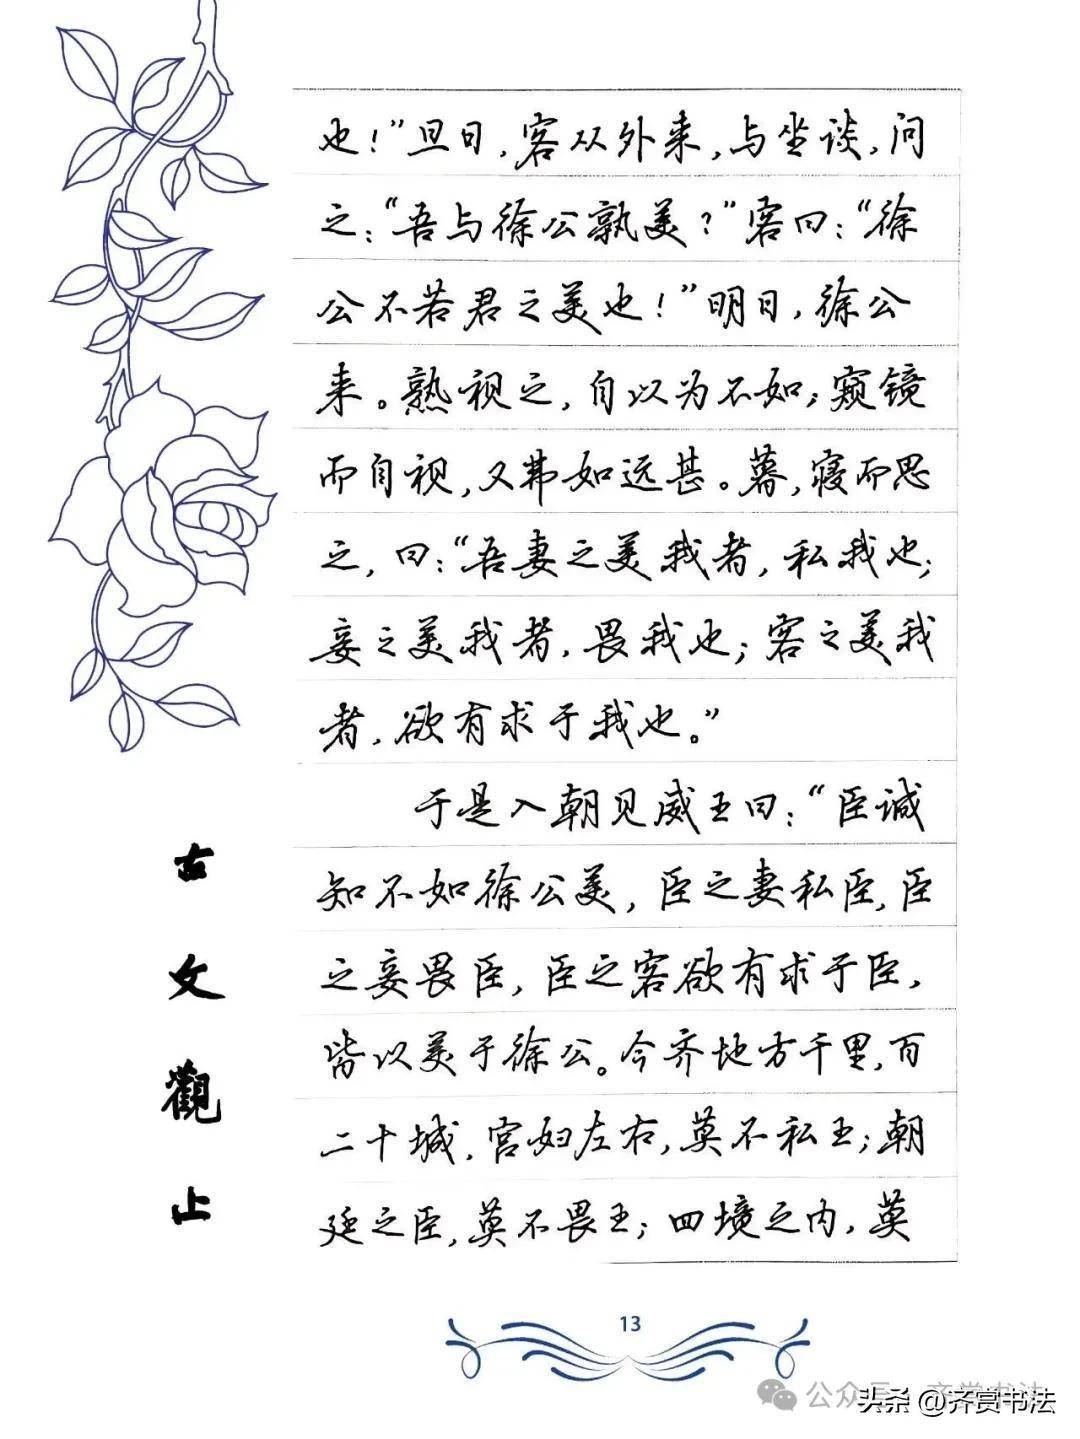 也！”旦日，客从外来，与坐谈，问
之：“吾与徐公孰美？”客曰：“徐
公不若君之美也！”明日，徐公
来。熟视之，自以为不如；窥镜
而自视，又弗如远甚。暮，寝而思
之，曰：“吾妻之美我者，私我也；
妾之美我者，畏我也；客之美我
者，欲有求于我也。”
于是入朝见威王曰：“臣诚
知不如徐公美，臣之妻私臣，臣
之妾畏臣，臣之客欲有求于臣，
皆以美于徐公。今齐地方千里，百
二十城，宫妇左右，莫不私王；朝
廷之臣，莫不畏王；四境之内，莫
古文觀止
13
公众号
头条 @齐赏书法